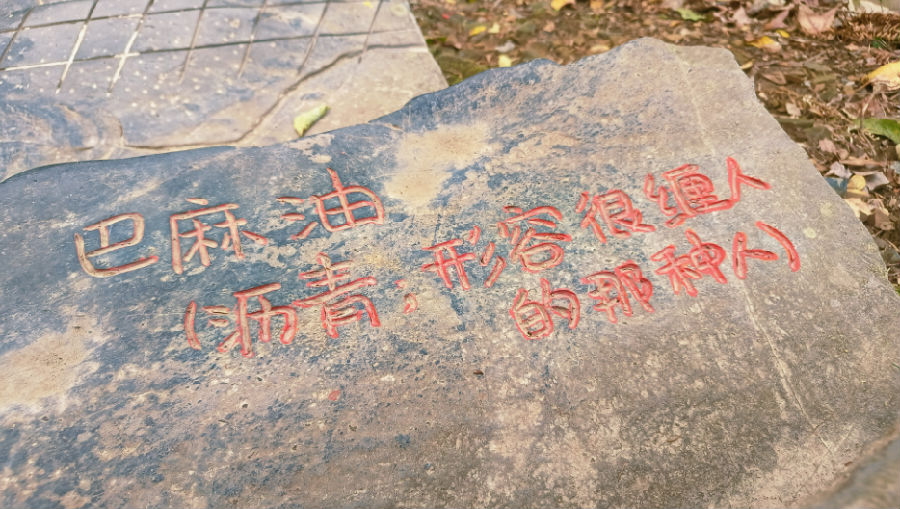 巴麻油
(沥青;形容很缠人
的那种人)